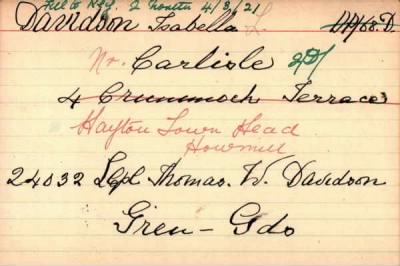 File to Reg. 2 Months 4/3/21
Davidson Isabella L. D/H/68.D.
Nr. Carlisle 2D/
4 Crummock Terrace
Hayton Town Head
Howmill
24032 L/Cpl Thomas. W. Davidson
Gren - Gds